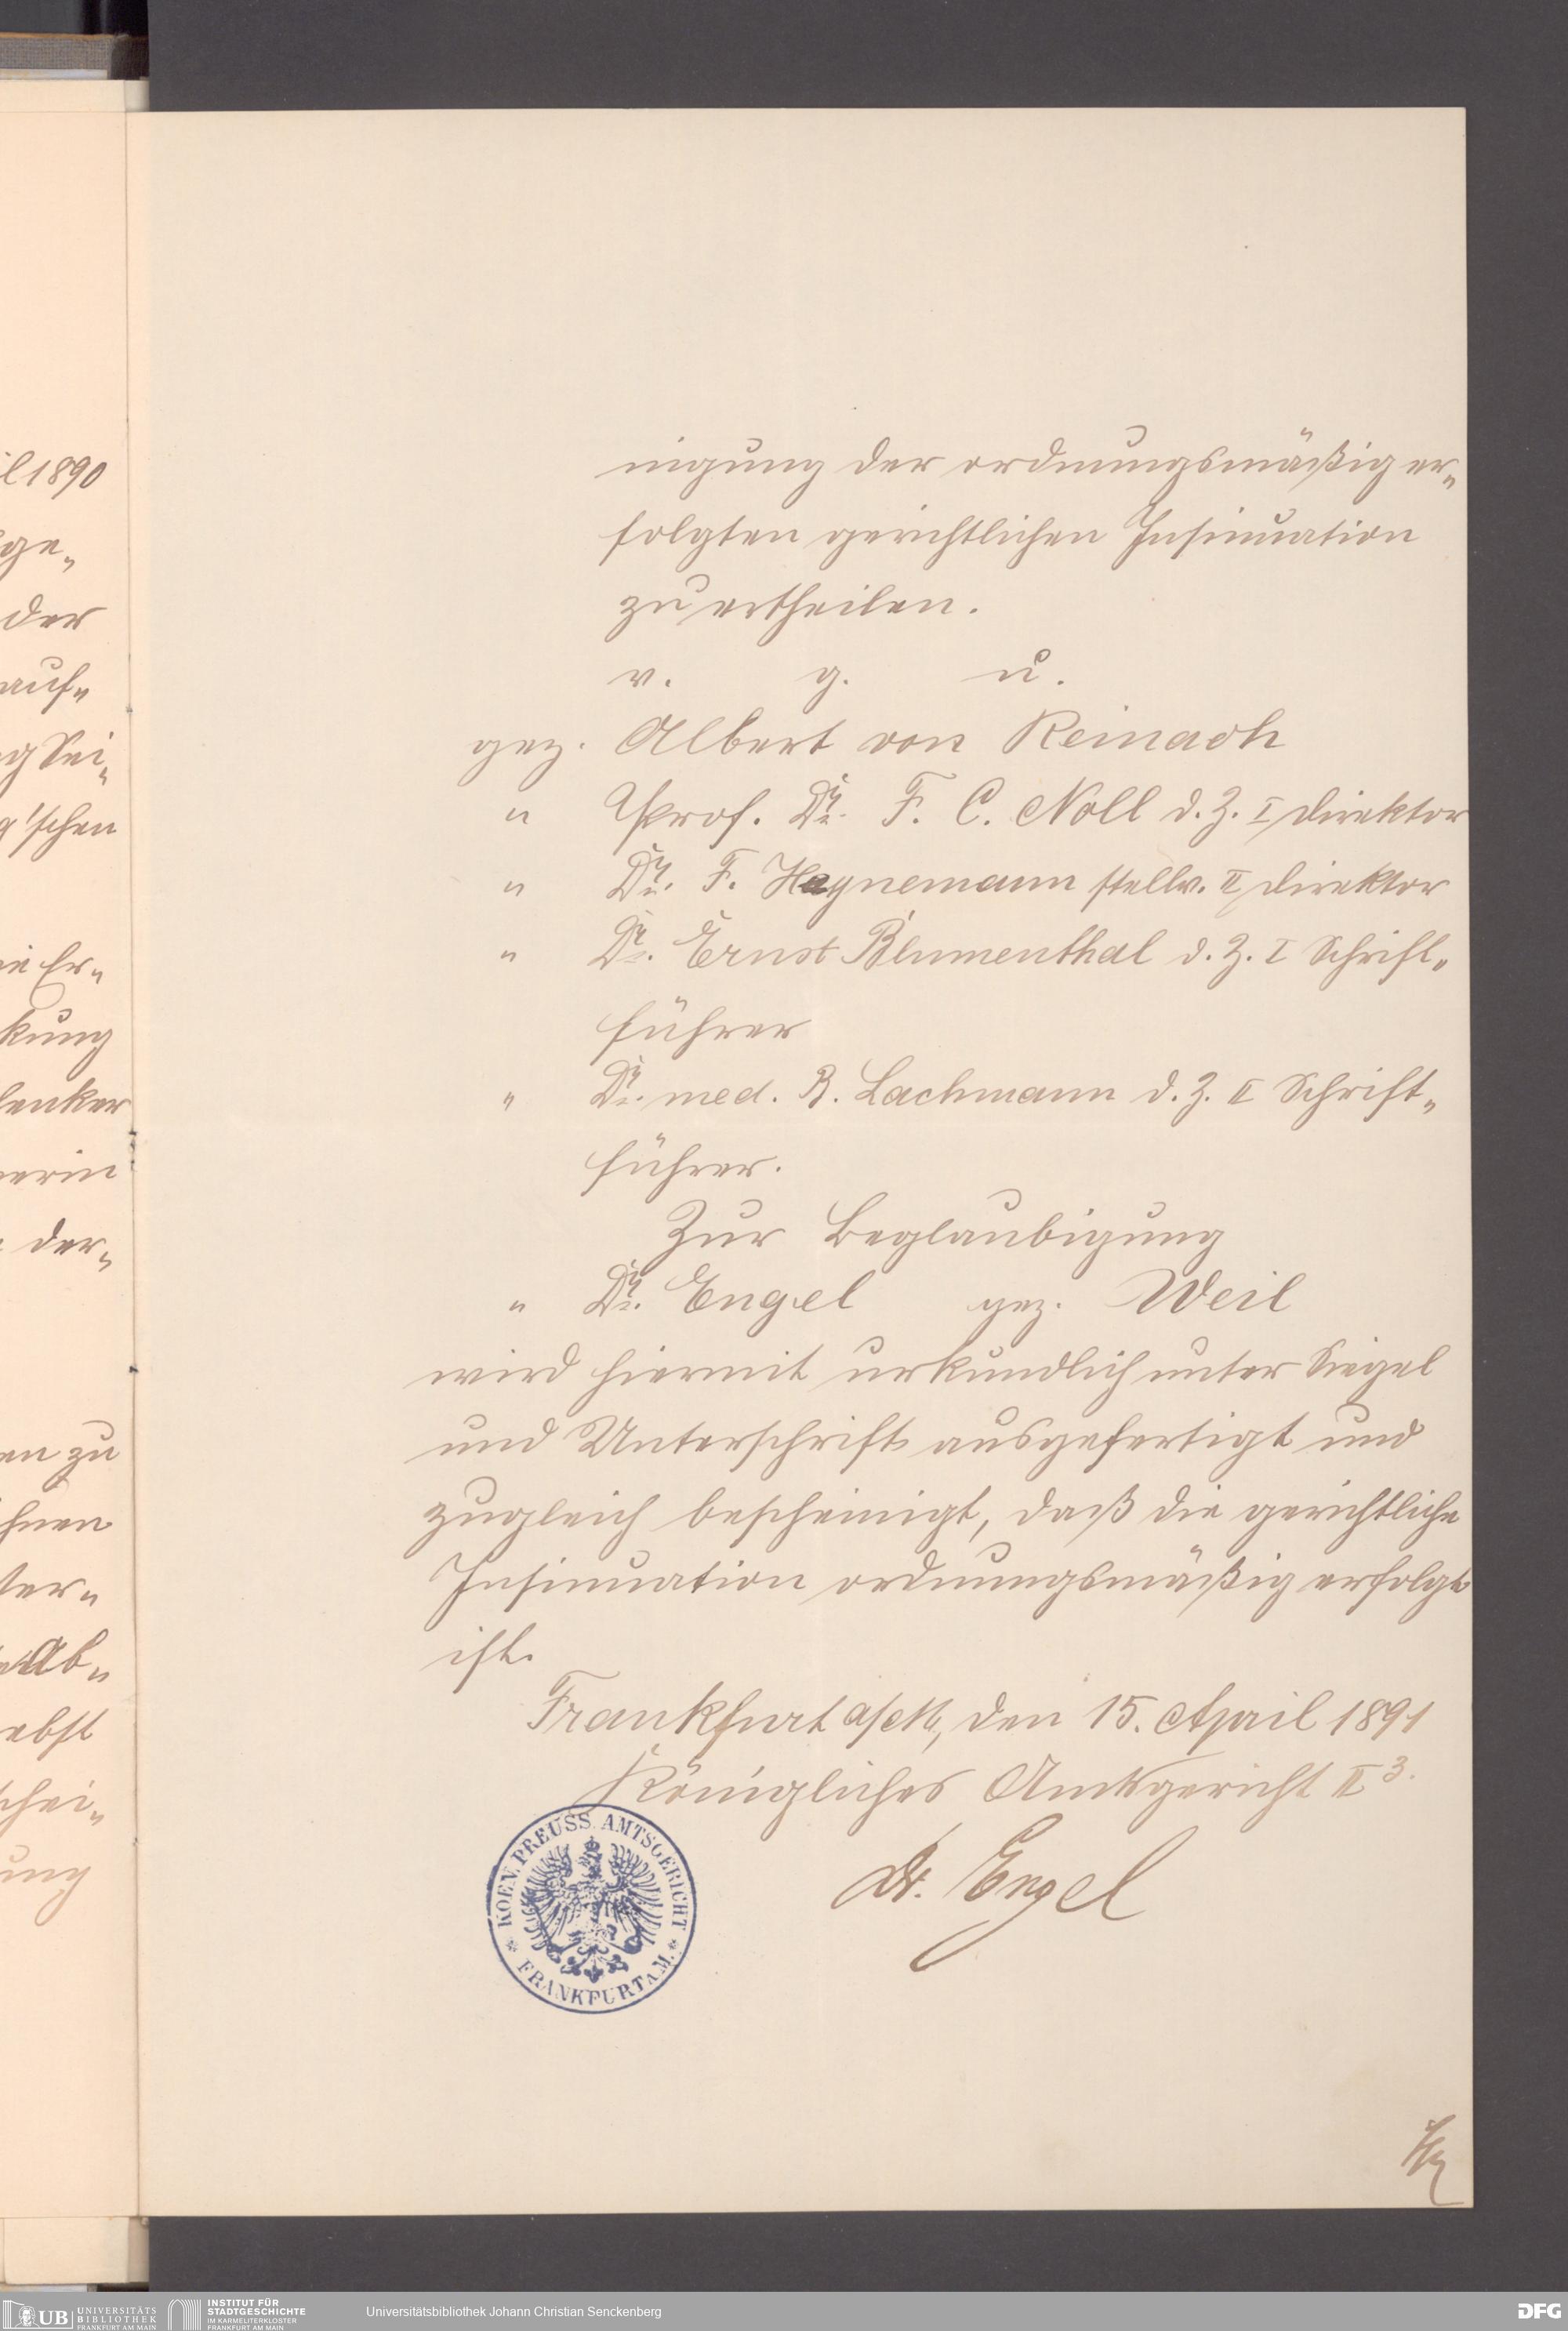 il 1890
ge„
der
auf„
g Sei„
g'schen
in Er„
kung
lenker
nerin
der„
en zu
hnen
ter„
Ab„
ebst
schei„
ung
nigung der ordnungsmäßig er„
folgten gerichtlichen Insinuation
zu ertheilen.
v. g. u.
gez. Albert von Reinach
" Prof. Dr. F. C. Noll d. Z. I Direktor
" Dr. F. Heynemann stellv. II Direktor
" Dr. Ernst Blumenthal d. Z. I Schrift„
führer
" Dr. med. B. Lachmann d. Z. II Schrift„
führer.
Zur Beglaubigung
" Dr. Engel gez. Weil
wird hiermit urkundlich unter Siegel
und Unterschrift ausgefertigt und
zugleich bescheinigt, daß die gerichtliche
Insinuation ordnungsmäßig erfolgt
ist.
Frankfurt a/M, den 15. April 1891
Königliches Amtsgericht II 3.
Dr. Engel
KOEN. PREUSS. AMTSGERICHT
* FRANKFURT A.M. *
UB UNIVERSITÄTS
BIBLIOTHEK
FRANKFURT AM MAIN
INSTITUT FÜR
STADTGESCHICHTE
IM KARMELITERKLOSTER
FRANKFURT AM MAIN
Universitätsbibliothek Johann Christian Senckenberg
DFG